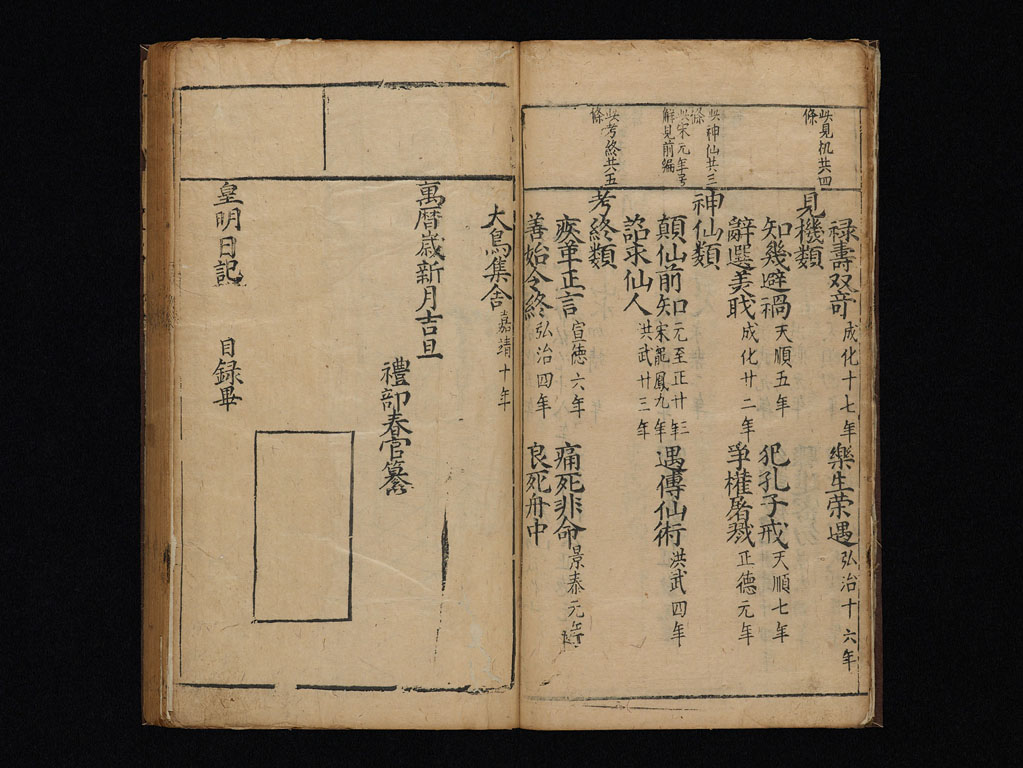 祿壽双竒 成化十七年 樂生荣遇 弘治十六年
此見机共四條
見機類
知幾避禍 天順五年 犯孔子戒 天順七年
辭選美職 成化廿二年 爭權屠戮 正德元年
此神仙共三條
神仙類
此宋元年号解見前編
顛仙前知 元至正廿三年 宋龍鳳九年 遇傳仙術 洪武四年
詔求仙人 洪武廿三年
此考終共五條
考終類
疾革正言 宣德六年 痛死非命 景泰元年
善始令終 弘治四年 良死舟中
大鳥集舍 嘉靖十年
萬曆歲新月吉旦
禮部春官纂
皇明日記 目録畢